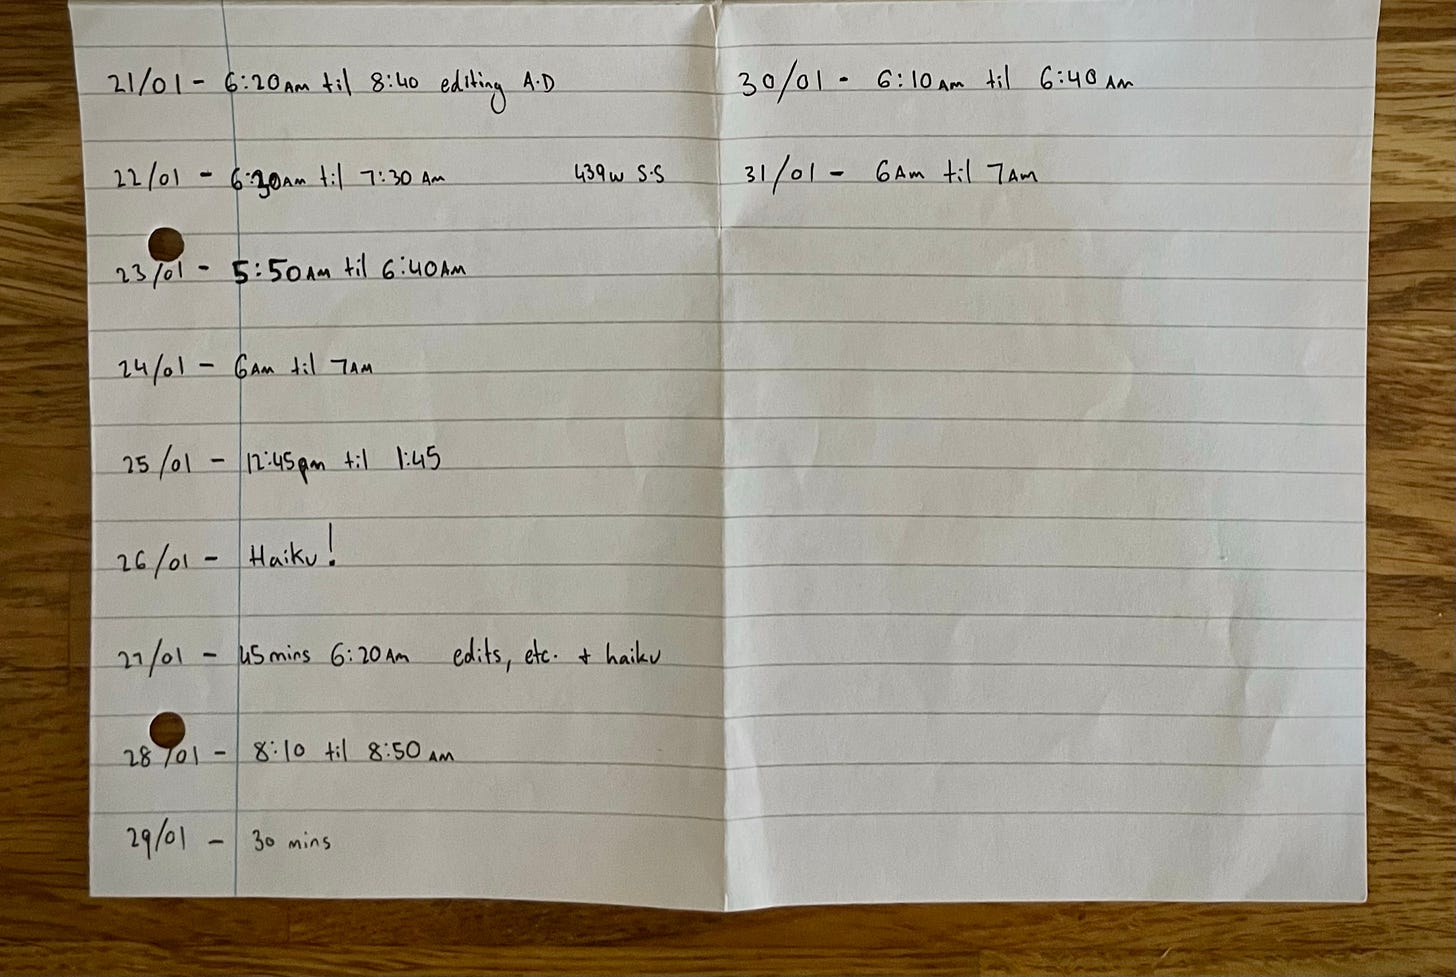 21/01 - 6:20AM til 8:40 editing A.D
22/01 - 6:30AM til 7:30 AM 439w S.S
23/01 - 5:50AM til 6:40AM
24/01 - 6AM til 7AM
25/01 - 12:45pm til 1:45
26/01 - Haiku!
27/01 - 45mins 6:20AM edits, etc. + haiku
28/01 - 8:10 til 8:50 AM
29/01 - 30 mins
30/01 - 6:10AM til 6:40 AM
31/01 - 6AM til 7AM